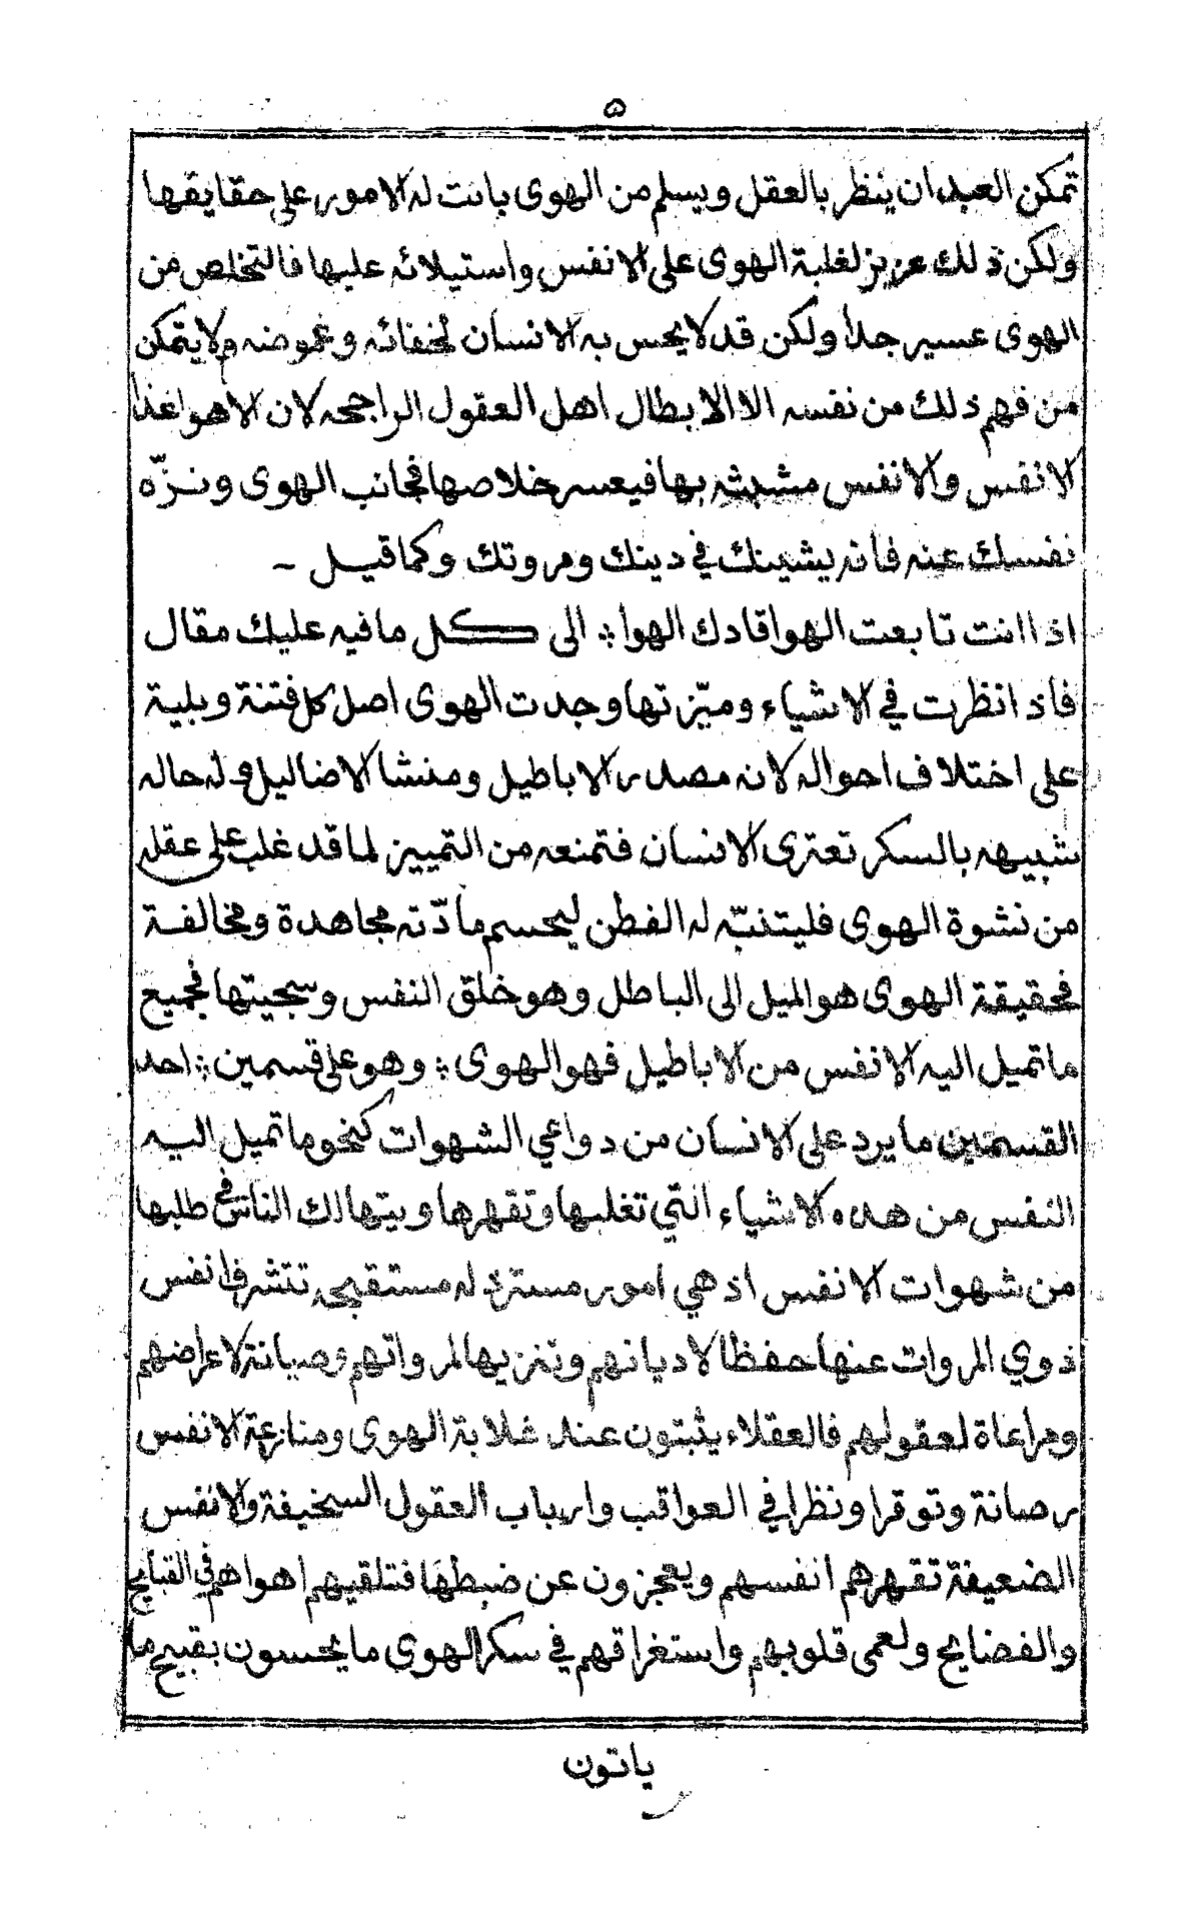 ۵
تمكن العبد ان ينظر بالعقل ويسلم من الهوى بانت له الامور على حقايقها
ولكن ذلك عزيز لغلبة الهوى على الانفس واستيلائه عليها فالتخلص من
الهوى عسير جدا ولكن قد لا يحس به الانسان لخفائه وغموضه ولا يتمكن
من فهم ذلك من نفسه الا الابطال اهل العقول الراجحه لان الاهوا غذا
الانفس والانفس متشبثه بها فيعسر خلاصها فجانب الهوى ونزّه
نفسك عنه فانه يشينك في دينك ومروتك وكما قيل ~
اذا انت تابعت الهوا قادك الهوا ؞ الى كل ما فيه عليك مقال
فاذ انظرت في الاشياء وميّزتها وجدت الهوى اصل كل فتنة وبلية
على اختلاف احواله لانه مصدر الاباطيل ومنشا الاضاليل وله حاله
شبيهه بالسكر تعترى الانسان فتمنعه من التمييز لما قد غلب على عقله
من نشوة الهوى فليتنبّه له الفطن ليحسم مادّته مجاهدة ومخالفة
فحقيقة الهوى هو الميل الى الباطل وهو خلق النفس وسجيتها فجميع
ما تميل اليه الانفس من الاباطيل فهو الهوى ؞ وهو على قسمين ؞ احد
القسمين ما يرد على الانسان من دواعي الشهوات كنحو ما تميل اليه
النفس من هذه الاشياء التي تغلبها وتقهرها ويتهالك الناس في طلبها
من شهوات الانفس اذ هي امور مسترذله مستقبحه تتشرف انفس
ذوي المروات عنها حفظا لاديانهم وتنزيها لمرواتهم وصيانة لاعراضهم
ومراعاة لعقولهم فالعقلاء يثبتون عند غلابة الهوى ومنازعة الانفس
رصانة وتوقرا ونظرا في العواقب وارباب العقول السخيفة والانفس
الضعيفة تقهرهم انفسهم ويعجزون عن ضبطها فتلقيهم اهواهم في القبايح
والفضايح ولعمى قلوبهم واستغراقهم في سكر الهوى ما يحسون بقبيح ما
ياتون